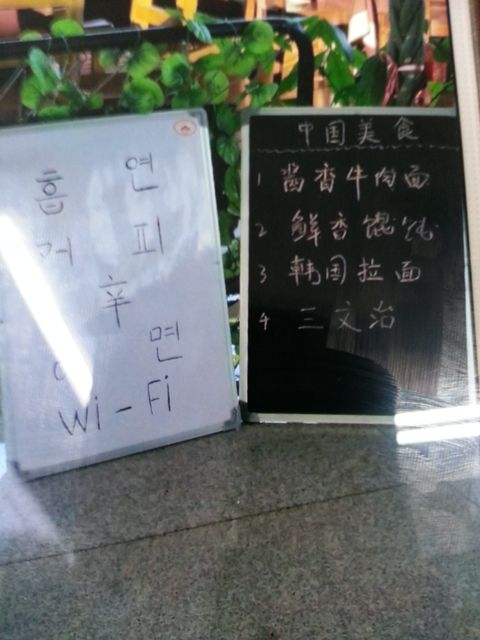 흡 연
커 피
辛
면
Wi-Fi
中国美食
1 酱香牛肉面
2 鲜香馄饨
3 韩国拉面
4 三文治